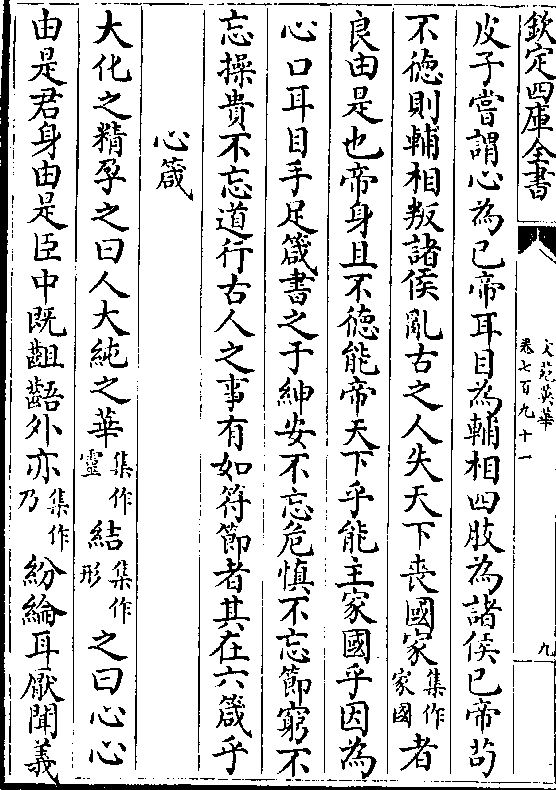 欽定四庫全書
文苑英華
卷七百九十一
九
皮子嘗謂心為己帝耳目為輔相四肢為諸侯已帝苟
不德則輔相叛諸侯亂古之人失天下喪國家集作家國者
良由是也帝身且不德能帝天下乎能主家國乎因為
心口耳目手足箴書之于紳安不忘危慎不忘節窮不
忘操貴不忘道行古人之事有如符節者其在六箴乎
心箴
大化之精孕之曰人大純之華集作靈結集作形之曰心心
由是君身由是臣中既齟齬外亦集作乃紛綸耳厭聞義